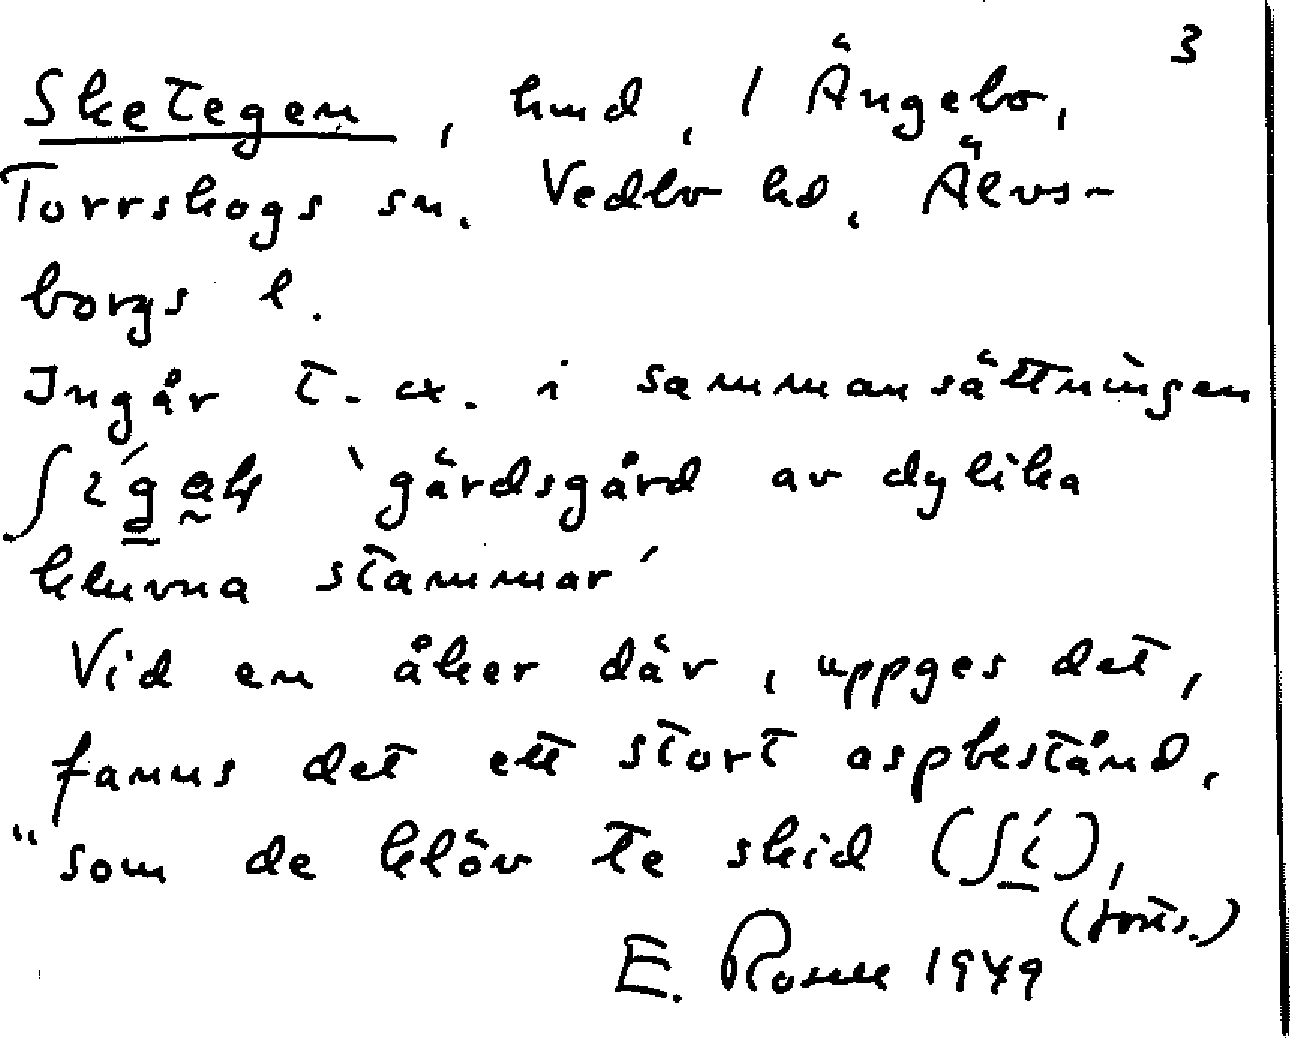 3
Sketegen, hmd, / Ängebo,
Torrskogs sn. Vedbo hd, Älvs-
borgs l.
Ingår t. ex. i sammansättningen
'gärdsgård av dylika
kluvna stammar'
Vid en åker där, uppges det,
fanns det ett stort aspbestånd,
"som de klöv te skid (ʃí),
(forts.)
E. Rosell 1949